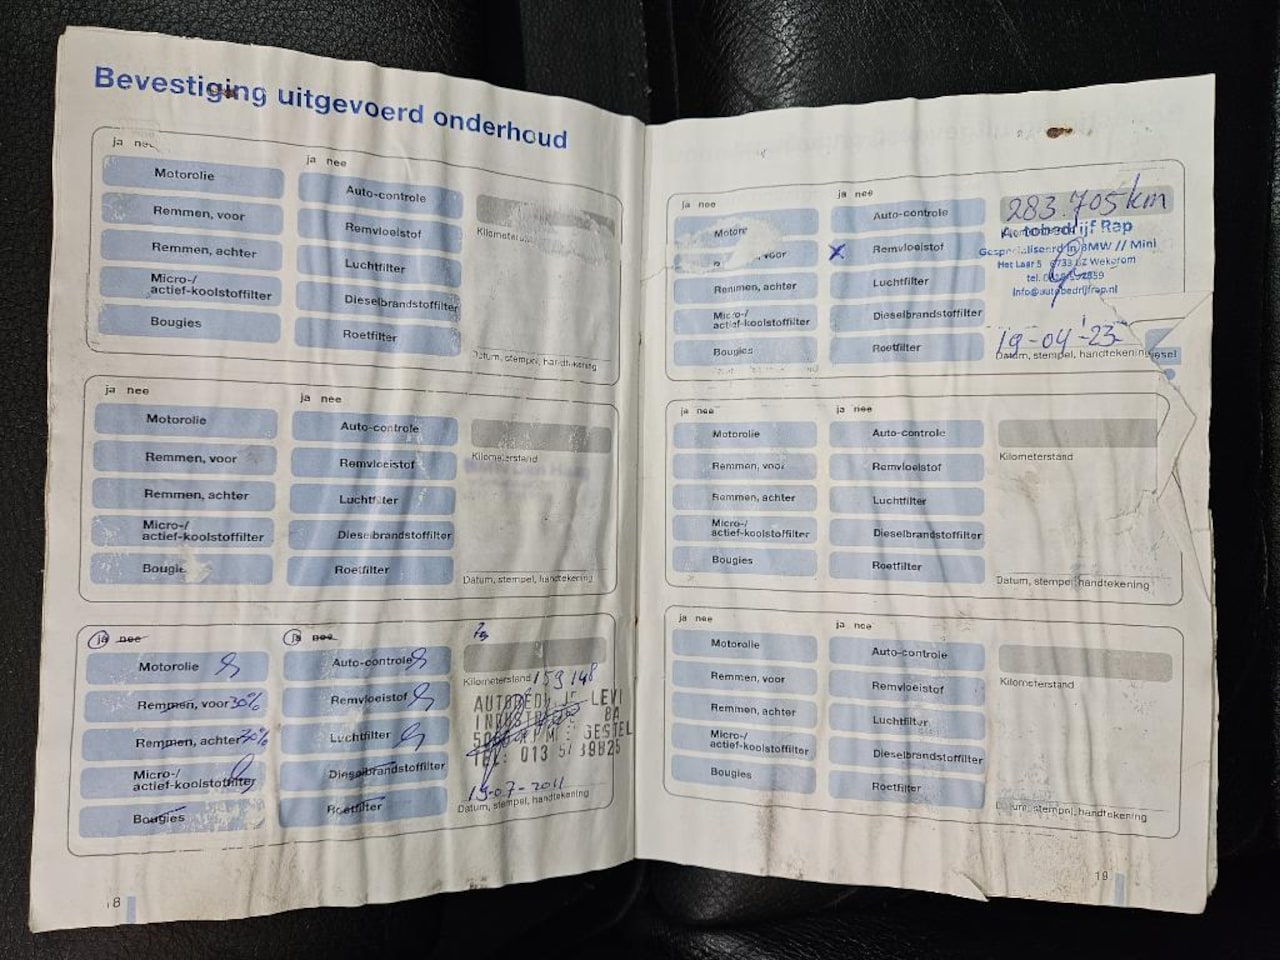 Bevestiging uitgevoerd onderhoud
ja nee
Motorolie
Remmen, voor
Remmen, achter
Micro-/
actief-koolstoffilter
Bougies
ja nee
Auto-controle
Remvloeistof
Luchtfilter
Dieselbrandstoffilter
Roetfilter
Datum, stempel, handtekening
ja nee
Motorolie
Remmen, voor
Remmen, achter
Micro-/
actief-koolstoffilter
ja nee
Auto-controle
Remvloeistof
Luchtfilter
Dieselbrandstoffilter
Roetfilter
Kilometerstand
Datum, stempel, handtekening
ja nee
Motorolie
Remmen, voor 30%
Remmen, achter
Micro-/
actief-koolstoffilter
Bougies
ja nee
Auto-controle
Remvloeistof
Luchtfilter
Dieselbrandstoffilter
Roetfilter
Kilometerstand 159148
LEVI
8A
GESTEL
TEL: 013
-07-2011
Datum, stempel, handtekening
18
ja nee
voor
Remmen, achter
Micro-/
actief-koolstoffilter
Bougies
ja nee
Auto-controle
X Remvloeistof
Luchtfilter
Dieselbrandstoffilter
Roetfilter
283.705 km
Autobedrijf Rap
Gespecialiseerd in BMW // Mini
Het Laar 5 6733 BZ Wekerom
tel.
info@autobedrijfrap.nl
19-04-'23
Datum, stempel, handtekening
esel
ja nee
Motorolie
Remmen, voor
Remmen, achter
Micro-/
actief-koolstoffilter
Bougies
ja nee
Auto-controle
Remvloeistof
Luchtfilter
Dieselbrandstoffilter
Roetfilter
Kilometerstand
Datum, stempel, handtekening
ja nee
Motorolie
Remmen, voor
Remmen, achter
Micro-/
actief-koolstoffilter
Bougies
ja nee
Auto-controle
Remvloeistof
Luchtfilter
Dieselbrandstoffilter
Roetfilter
Kilometerstand
Datum, stempel, handtekening
19